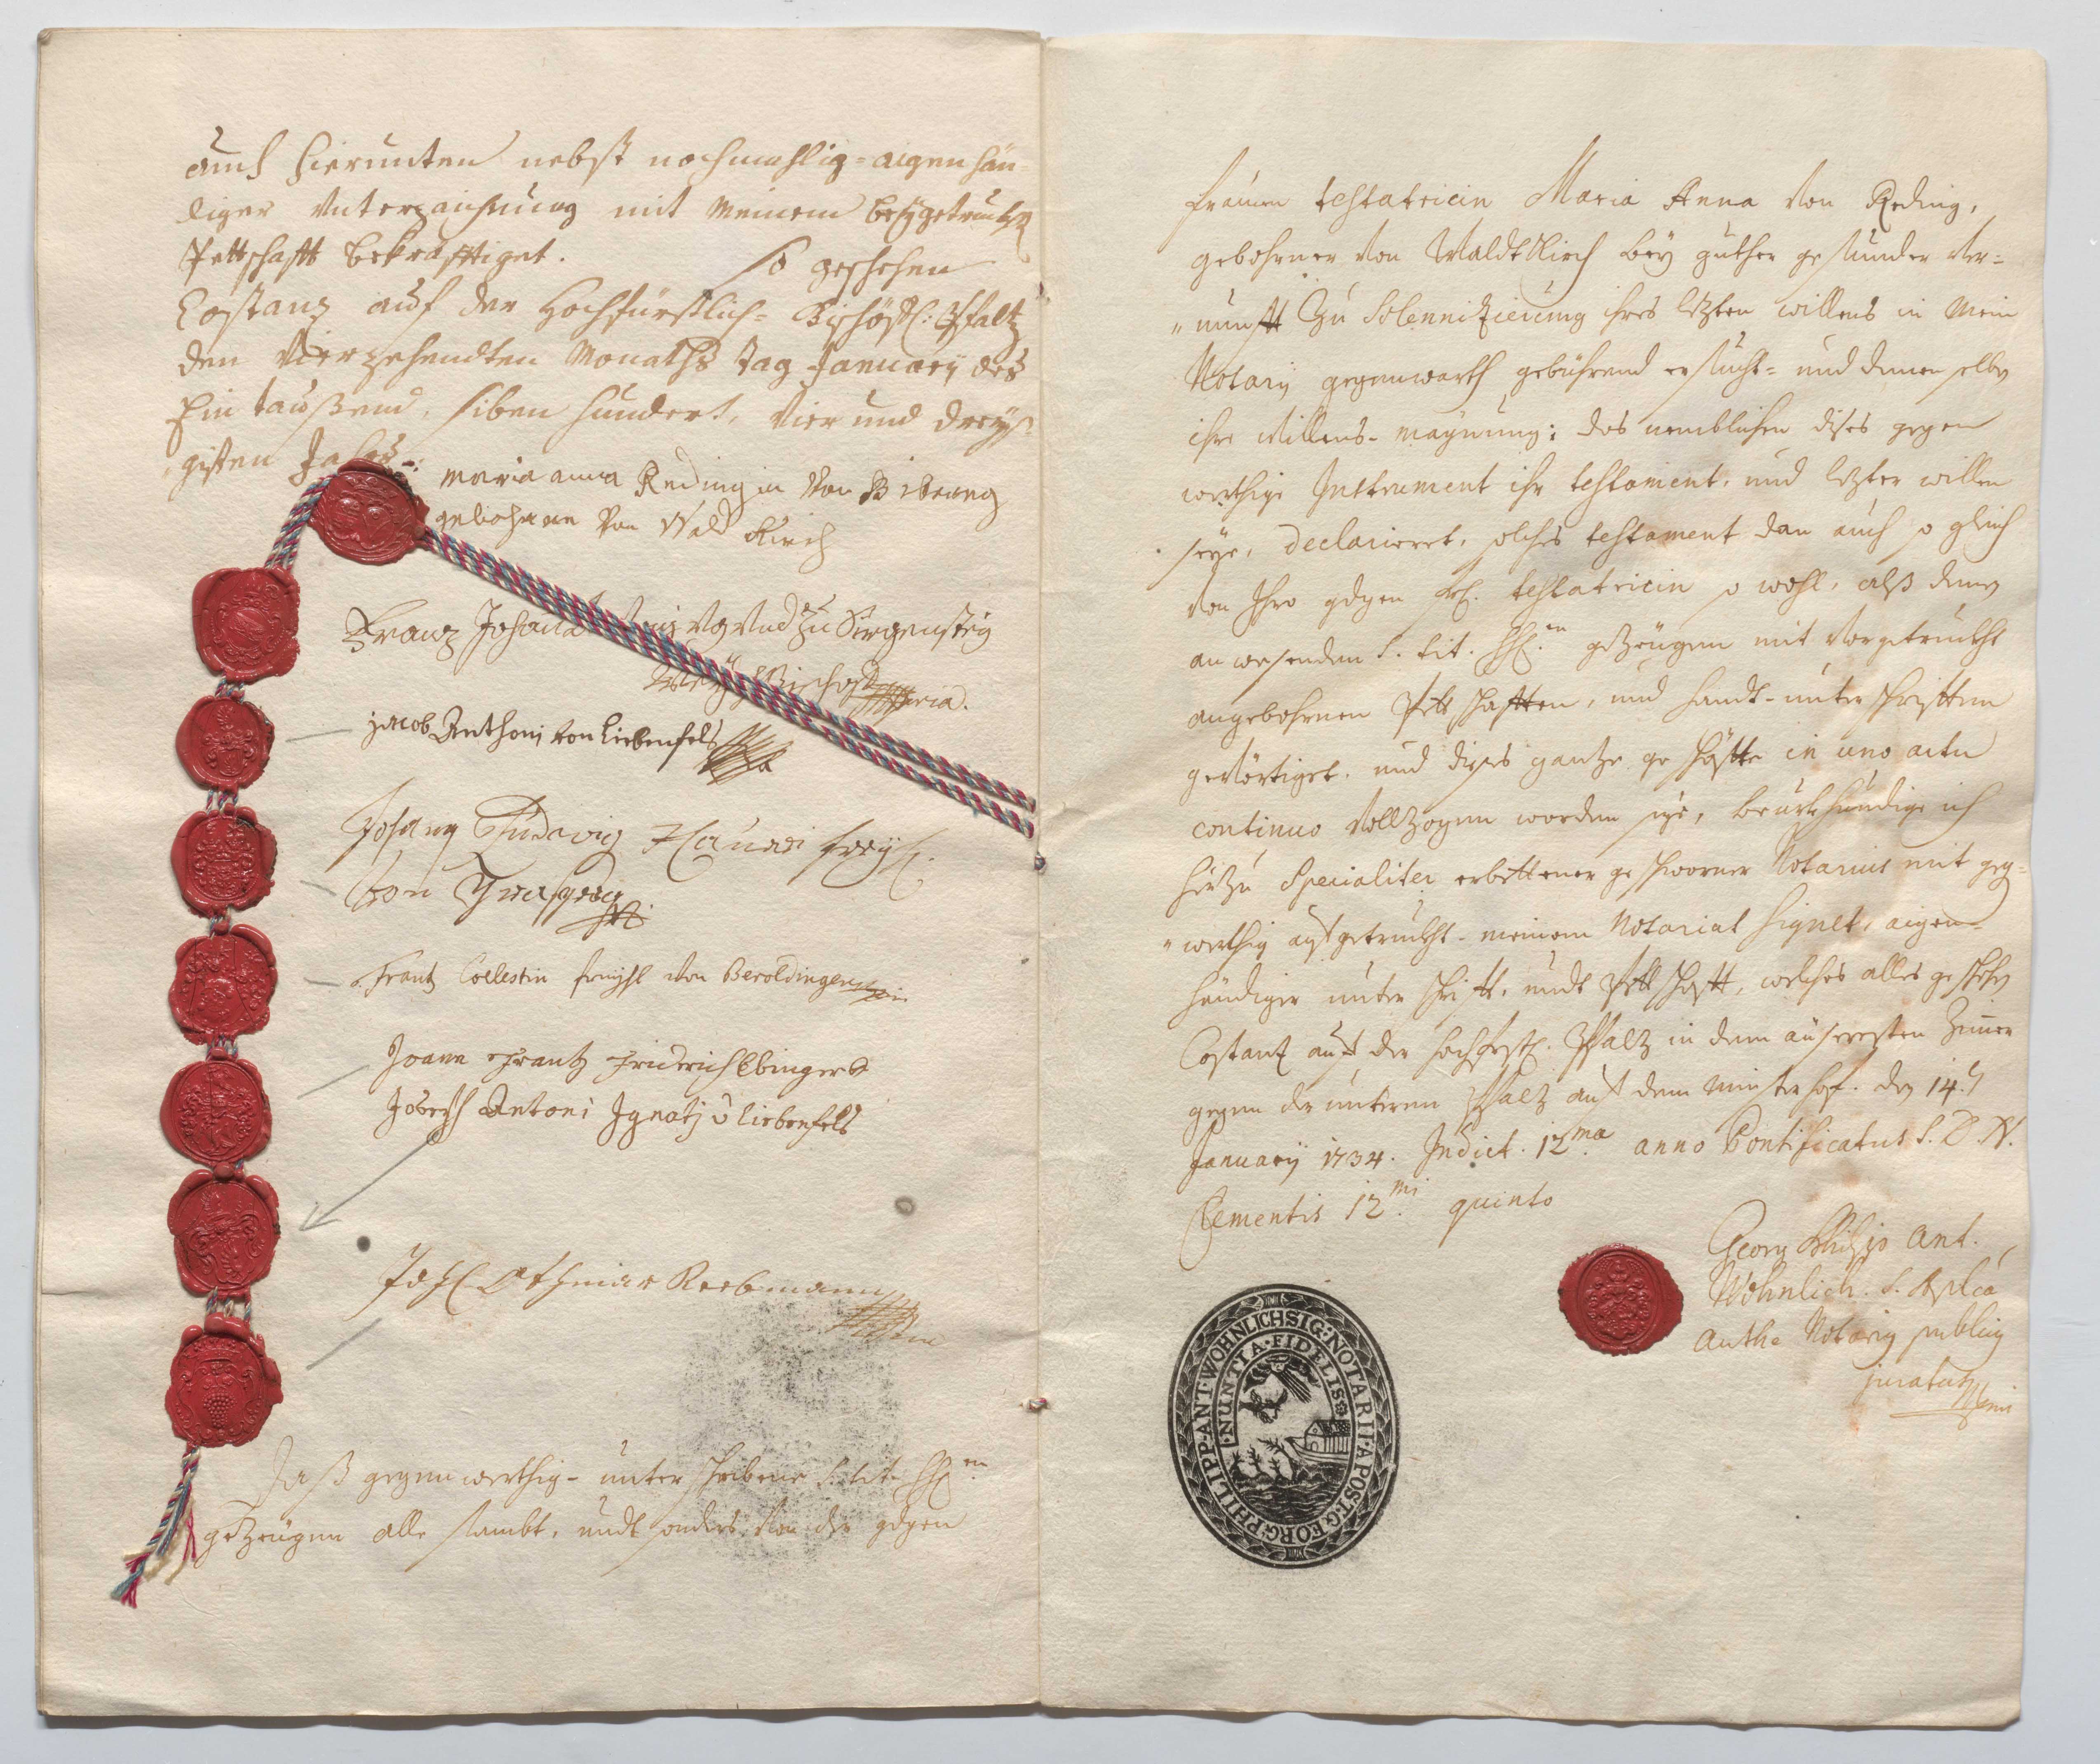 auch hierunten nebst nochmahlig-aigenhän
diger Unterzaichnung mit meinem beygetruckhten
Pettschafft bekräfftiget. So geschehen
Costanz auf der Hochfürstlich- Bischöfl: Pfaltz
den Vierzehendten Monaths Tag January des
Ein taußend, siben hundert, Vier und dreyß-
igisten Jahrs.
maria anna Redingin Von Biberegg
gebohrne Von Wald Kirch
Franz Johann Von Und Zu Sirgenstein
Weyh Bischoff
jacob Anthoni von Liebenfels
Johann Ludwig freyh.
von
Frantz Coelestin freyhl von Beroldingen
Joann Frantz Fridrich Ebinger
Joseph Antoni Ignatj v Liebenfels
Joh Othmar Rebmann
Daß gegenwerthig-unterschribene S. tit. HH.en
gezeügen alle sambt, undt sonders von der gdgen
frauen testatricin Maria Anna von Reding,
gebohrner von Waldtkirch bey guther gesunder Ver-
nunfft zu Solennizierung ihres lezten willens in mein
Notary gegenwarth gebührend ersucht- und denenselben
ihre willens-maynung: das nemblichen dises gegen
werthige Instrument ihr testament, und lezter willen
seye, declarieret, solches testament dan auch so gleich
von Ihro gdgen fr. testatricin so wohl, alß denen
anwesenden S. tit. HH.en gezeügen mit vorgetruckht
angebohrnen Pettschafften, und handt-unterschrifften
geförtiget, und dises gantze geschäfft in uno actu
continuo vollzogen worden seye, beurkhundige ich
hierzu Specialiter erbettener geschworner Notarius mit geg-
werthig aufgetruckht-meinem Notariat Signet, aigen-
händiger unterschrifft, undt Pettschafft, welches alles geschehen
Costantz auf der hochfrstl. Pfalz in dem äusseresten Zimer
gegen der unteren Pfalz auf dem münster hof. den 14.
January 1734. Indict. 12.ma anno Pontificatus S. D. N.
Clementis 12.mi quinto
Georg Philipp Ant.
Wohnlich. S.
Autho Notariq publicq
juratus
SIG: NOTARII APOST: GEORG: PHILIP: ANT: WOHNLICH
NUNTIA FIDELIS